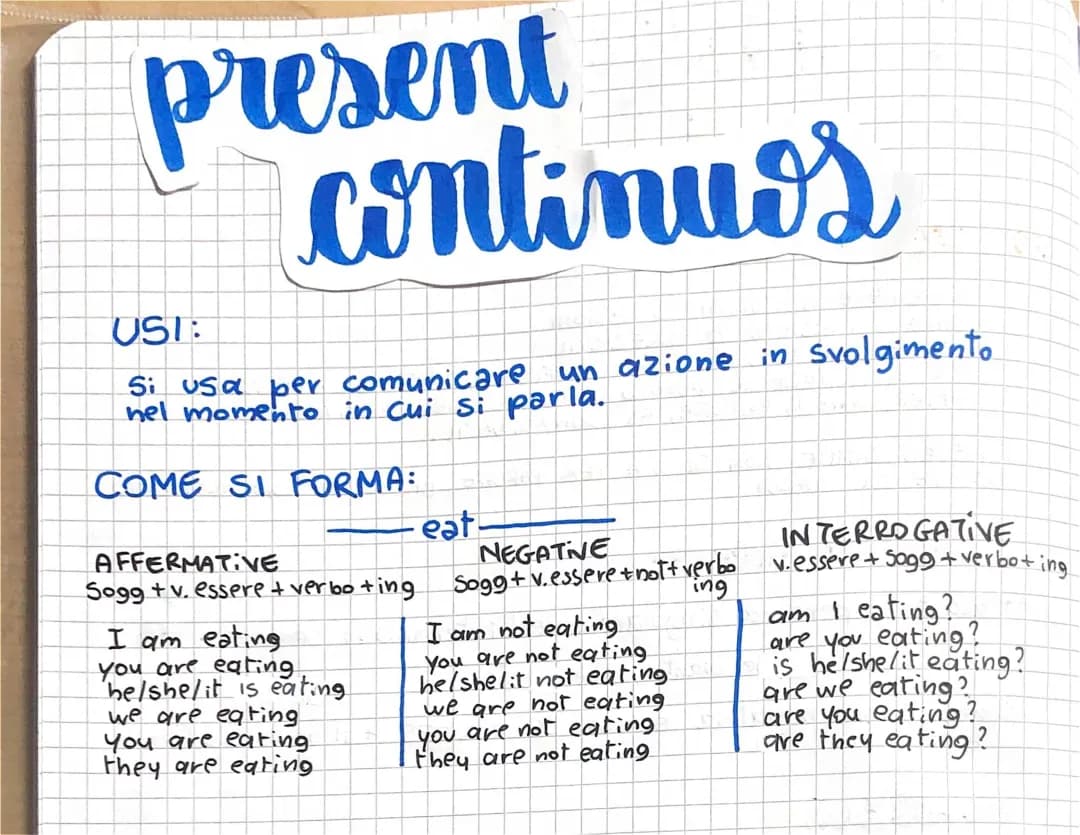 present
continuos
USI:
Si usa per comunicare un azione in svolgimento
nel momento in cui si parla.
COME SI FORMA:
eat
AFFERMATIVE
Sogg + v. essere + verbo + ing
I am eating
you are eating
he/she/it is eating
we are eating
you are eating
they are eating
NEGATIVE
Sogg + v. essere + not + verbo
ing
I am not eating
you are not eating
he/she/it not eating
we are not eating
you are not eating
they are not eating
INTERROGATIVE
v. essere + sogg + verbo + ing
am I eating?
are you eating?
is he/she/it eating?
are we eating?
are you eating?
are they eating?